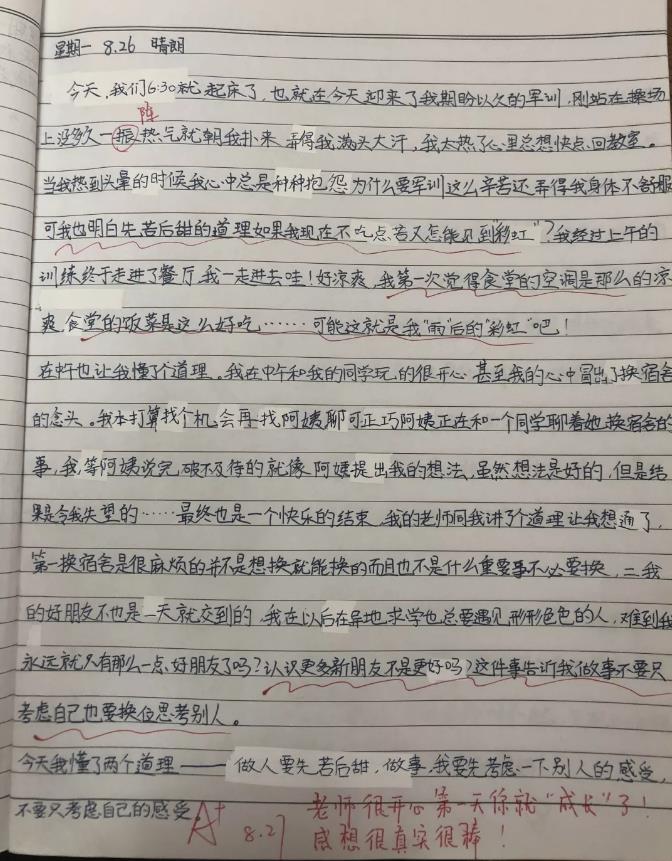 星期一 8.26 晴朗
今天,我们6:30就起床了,也就在今天迎来了我期盼以久的军训,刚站在操场
阵
上没多久一振热气就朝我扑来 弄得我满头大汗,我太热了心里总想快点回教室。
当我热到头晕的时候我心中总是种种抱怨为什么要军训这么辛苦还弄得我身体不舒服
可我也明白先苦后甜的道理如果我现在不吃点苦又怎能见到"彩虹"?我经过上午的
训练终于走进了餐厅,我一走进去哇!好凉爽,我第一次觉得食堂的空调是那么的凉
爽,食堂的饭菜是这么好吃……可能这就是我"雨"后的"彩虹"吧!
在中午也让我懂了个道理。我在中午和我的同学玩的很开心 甚至我的心中冒出了换宿舍
的念头。我本打算找个机会再找阿姨聊可正巧阿姨正在和一个同学聊着她换宿舍的
事,我等阿姨说完,破不及待的就像阿姨提出我的想法,虽然想法是好的,但是结
果是令我失望的……最终也是一个快乐的结束,我的老师同我讲了个道理让我想通了,
第一换宿舍是很麻烦的并不是想换就能换的而且也不是什么重要事不必要换,二我
的好朋友不也是一天就交到的,我在以后在异地求学也总要遇见形形色色的人,难到我
永远就只有那么一点好朋友了吗?认识更多新朋友不是更好吗?这件事告诉我做事不要只
考虑自己也要换位思考别人。
今天我懂了两个道理——做人要先苦后甜,做事,我要先考虑一下别人的感受,
不要只考虑自己的感受。
A+ 8.27
老师很开心第一天你就"成长"了!
感想很真实很棒!